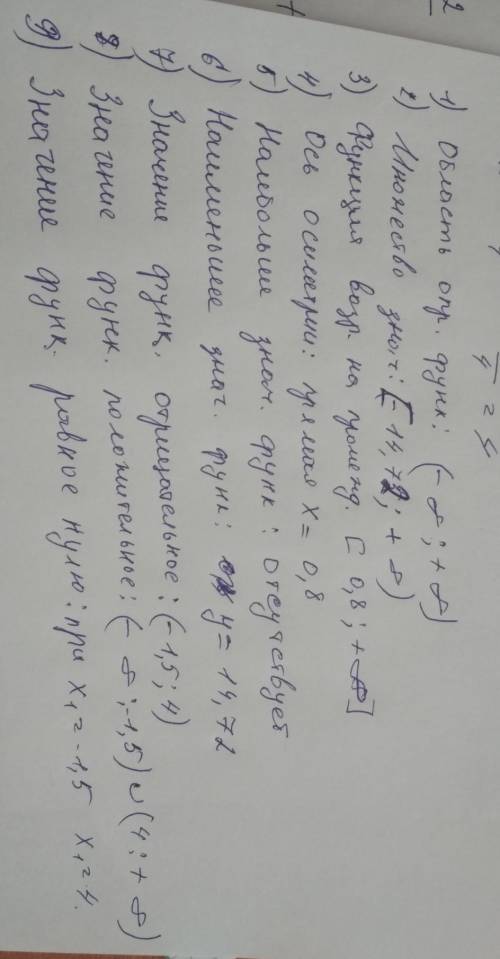 1) Область опр. функ: (-∞; +∞)
2) Множество знач: [-14,72; +∞)
3) Функция возр. на промежд. [0,8; +∞]
4) Ось осиметрии: прямая x = 0,8
5) Наибольшее знач. функ: отсутствует
6) Наименьшее знач. функ: y = 14,72
7) Значение функ. отрицательное: (-1,5; 4)
8) Значение функ. положительное: (-∞; -1,5) ∪ (4; +∞)
9) Значение функ. равное нулю: при x₁ = -1,5 x₁ = 4.